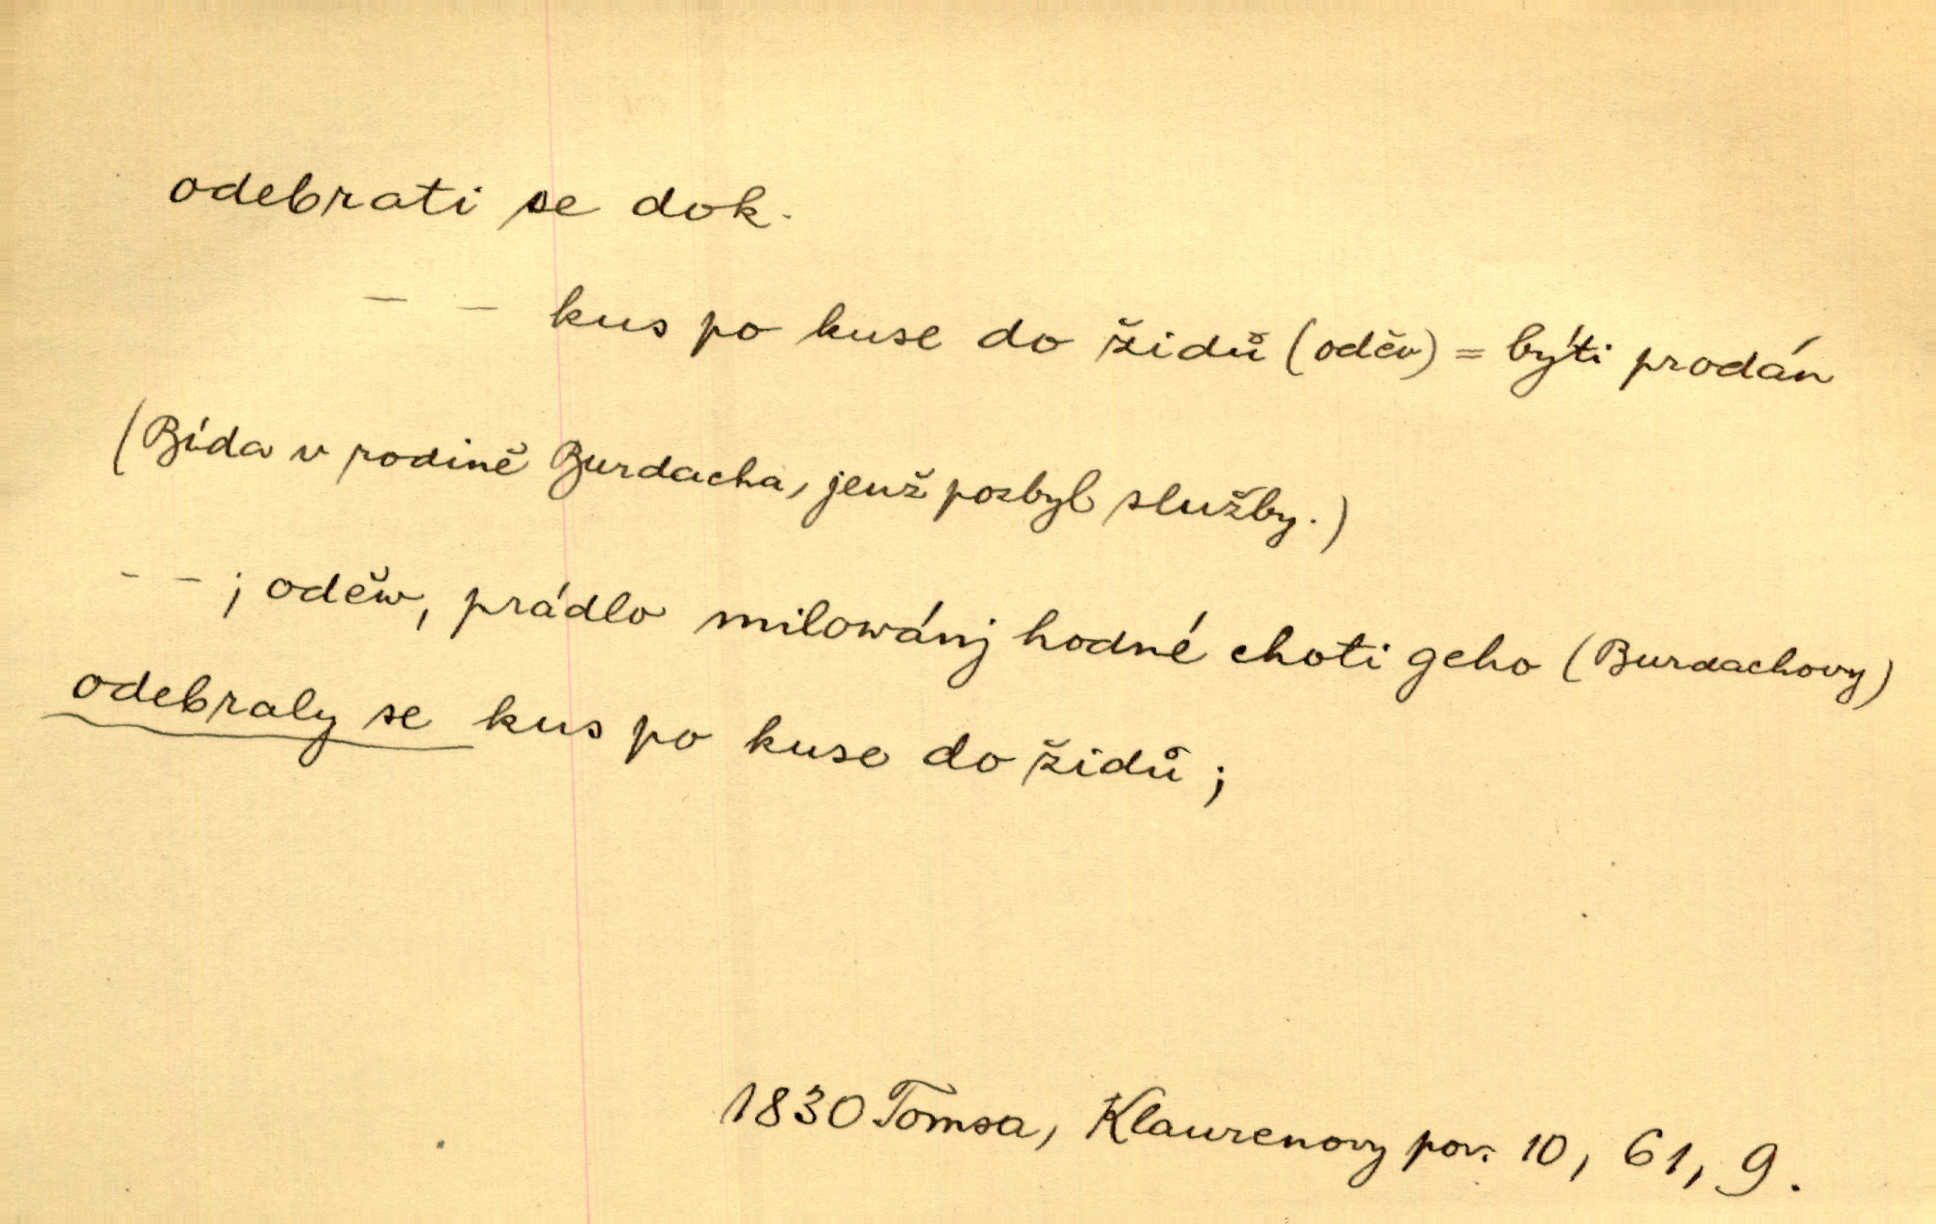 odebrati se dok.
– – kus po kuse do židů (oděv) = býti prodán
(Bída v rodině Burdacha, jenž pozbyl služby.)
– – ; oděw, prádlo milowánj hodné choti geho (Burdachovy)
odebraly se kus po kuse do židů ;
1830 Tomsa, Klaurenovy pov. 10, 61, 9.